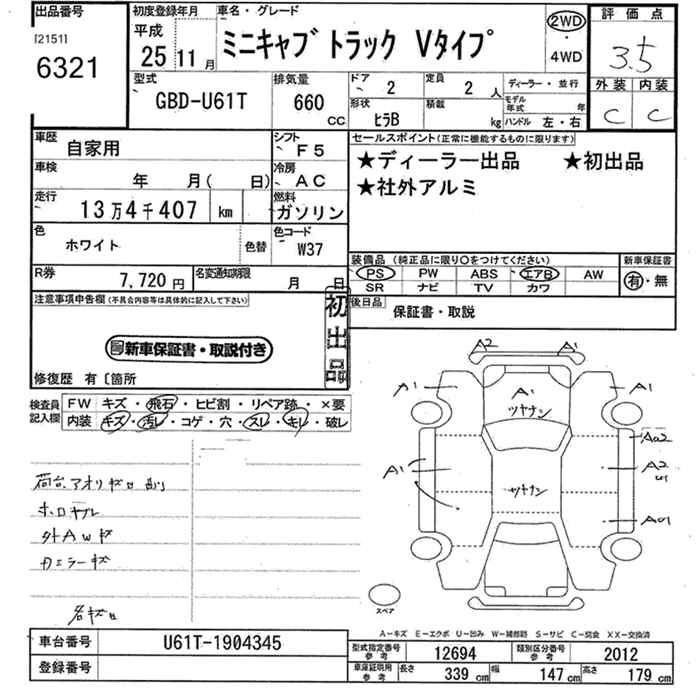 出品番号
[2151]
6321
初度登録年月
平成
25年 11月
車名・グレード
ミニキャブ トラック Vタイプ
2WD
・
4WD
評価点
3.5
外装 内装
C C
型式
GBD-U61T
排気量
660
CC
ドア
2
定員
2 人
ディーラー・並行
形状
ヒラB
積載
kg
モデル年式 年
ハンドル 左・右
車歴
自家用
シフト
F5
セールスポイント(正常に機能するものに限ります)
★ディーラー出品 ★初出品
★社外アルミ
車検
年 月( 日)
冷房
AC
走行
13万4千407 km
燃料
ガソリン
色
ホワイト
色替
色コード
W37
装備品(純正品に限り○をつけてください)
PS PW ABS エアB AW
SR ナビ TV カワ
新車保証書
有・無
R券
7,720円
名変通知期限
月 日
後日品
保証書・取説
注意事項申告欄(不具合内容等は具体的に記入して下さい)
初出品
新車保証書・取説付き
修復歴 有〔箇所
検査員記入欄
FW キズ・飛石・ヒビ割・リペア跡・×要
内装 キズ・汚レ・コゲ・穴・スレ・キレ・破レ
荷台、アオリキズ凹
ホロヤブレ
外AWキズ
カエラーキズ
各キズ凹
A2 A1
A1 A1 A1
ツヤナシ
A1 ツヤナシ A2
スペア
A-キズ E-エクボ U-凹み W-補修跡 S-サビ C-腐食 XX-交換済
車台番号
U61T-1904345
登録番号
型式指定番号参考
12694
類別区分番号参考
2012
車庫証明用参考
長さ 339 cm
幅 147 cm
高さ 179 cm